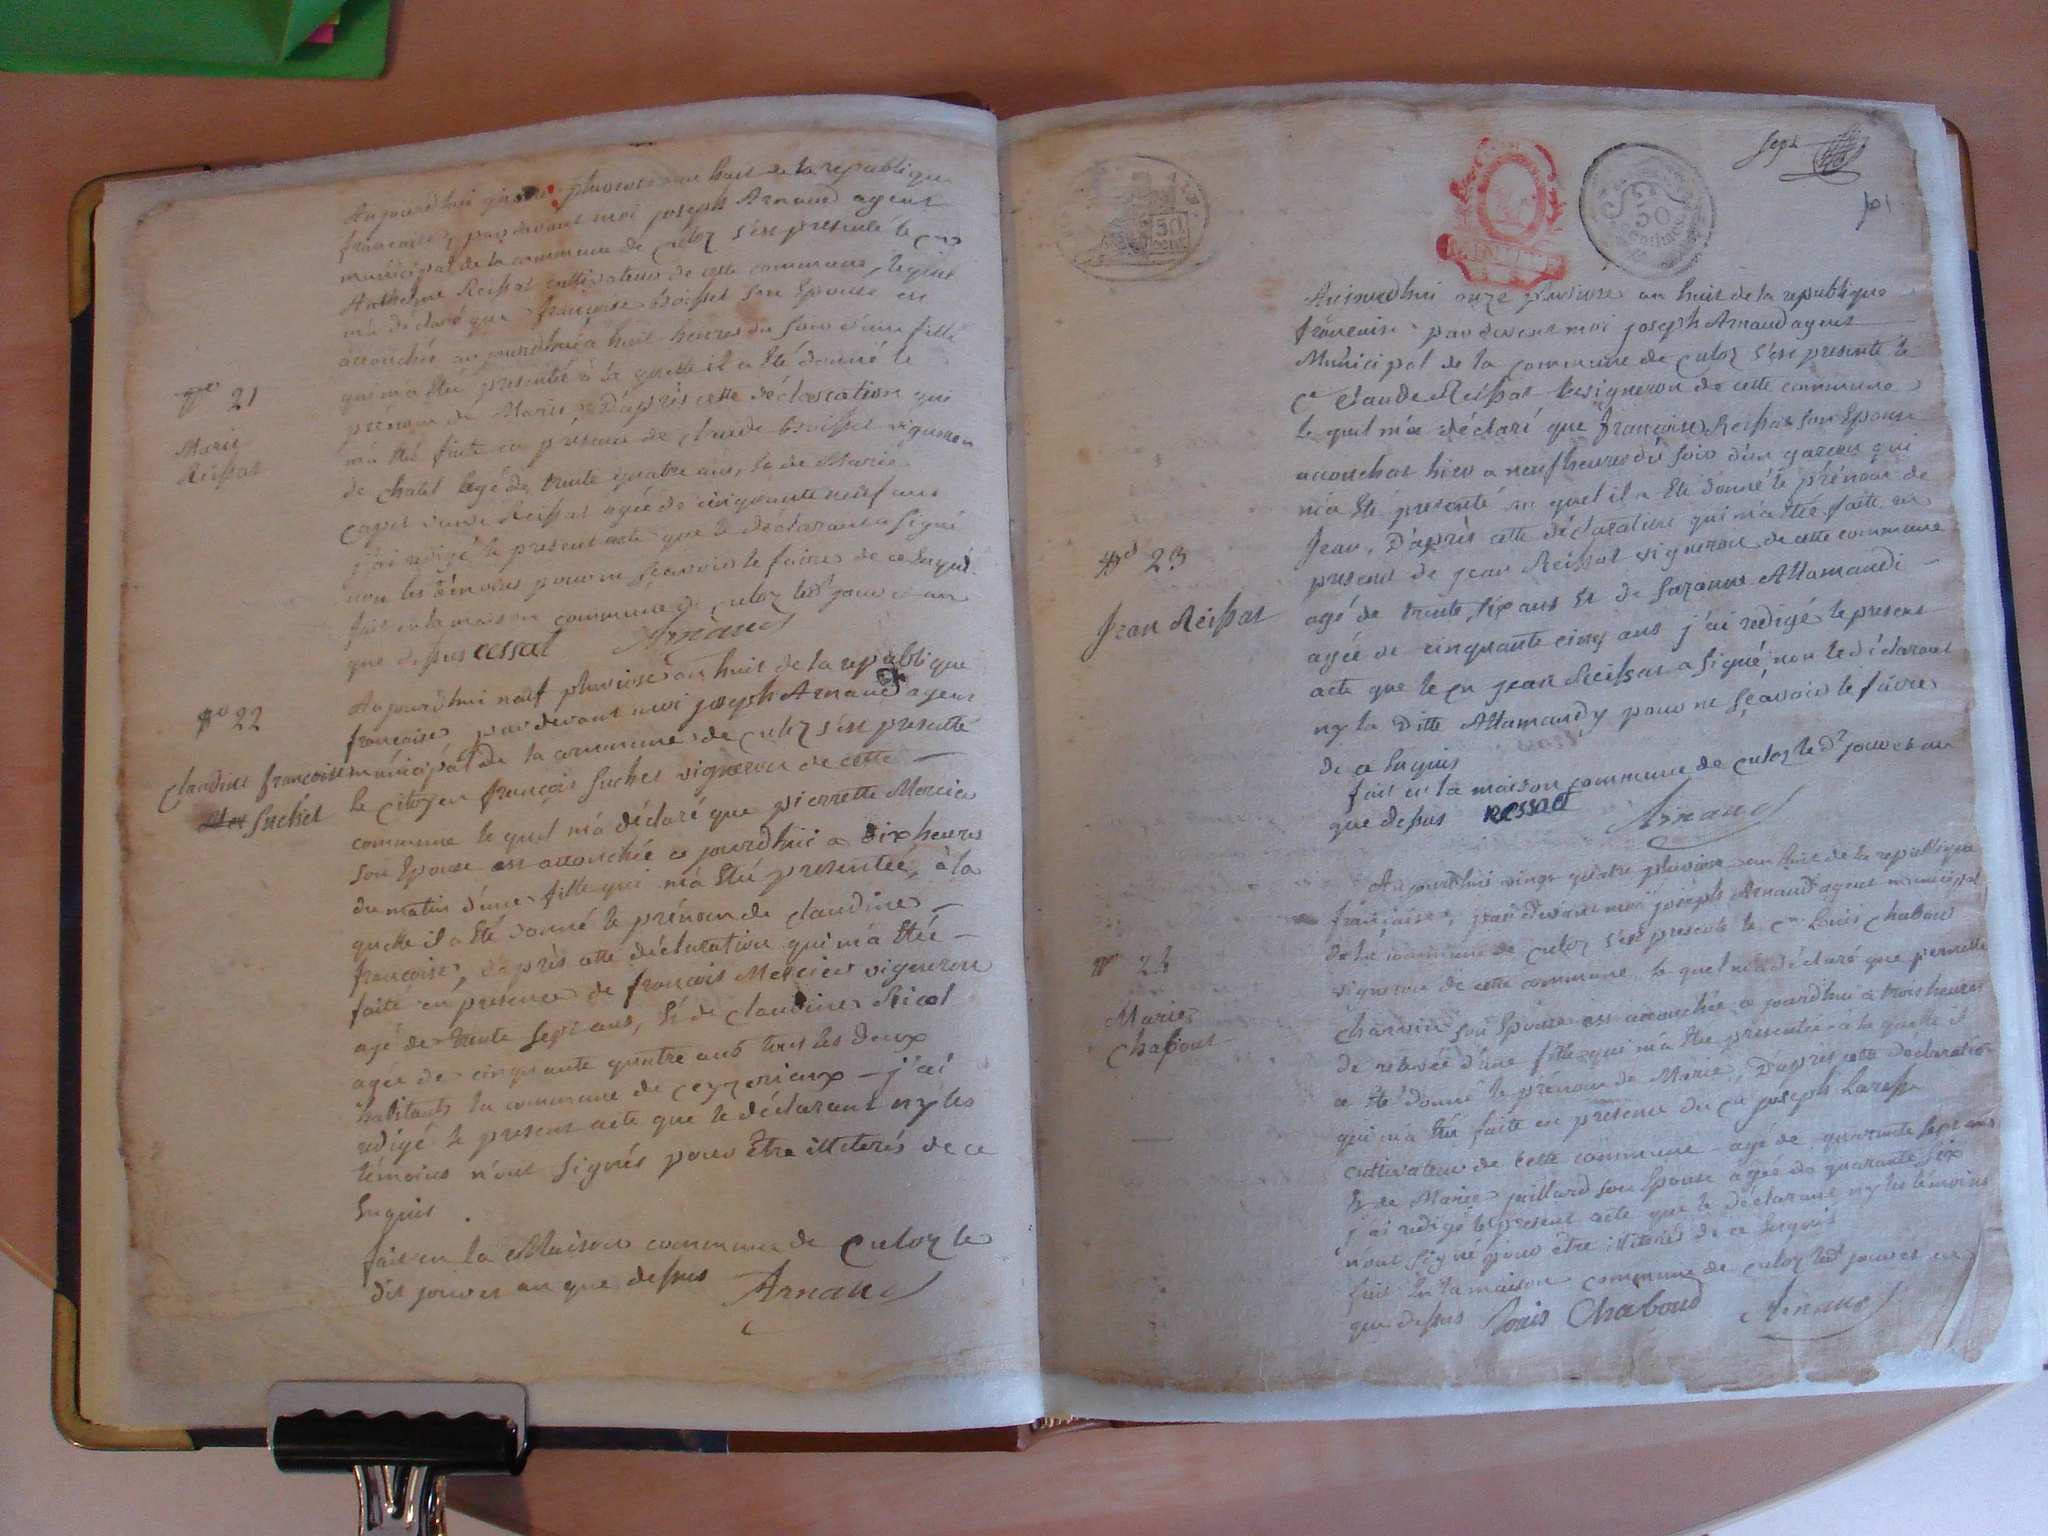 Aujourdhui pluviose an huit de la republique
francaise, par devant moi joseph Arnaud agent
municipal de la commune de culoz s'est presenté le cen
Anthelme Reissat cultivateur de cette commune, lequel
m'a déclaré que francoise Boisset son Epouse est
accouchée aujourdhui a huit heures du soir d'une fille
qui m'a Eté presentée à la quelle il a Eté donné le
prénom de Marie, D'après cette déclaration qui
m'a Eté faite en présence de claude Boisset vigneron
de chatel agé de trente quatre ans, Et de Marie
veuve Reissat agée de cinquante neuf ans
j'ai redigé le present acte que le déclarant a signé
non les témoins pour ne sçavoir le faire de ce Enquis
fait en la maison commune de culoz led. jour et an
que dessus Arnaud
No 21
Marie
Reissat
Aujourdhui neuf pluviose an huit de la republique
francaise, par devant moi joseph Arnaud agent
municipal de la commune de culoz s'est presenté
le citoyen françois Suchet vigneron de cette
commune le quel m'a déclaré que pierrette Mercier
son Epouse est accouchée ce jourdhui a dix heures
du matin d'une fille qui m'a Eté presentée, à la
quelle il a Eté donné le prénom de claudine
francoise, d'après cette déclaration qui m'a Etée
faite en presence de françois Mercier vigneron
agé de trente sept ans, Et de claudine Nicol
agée de cinquante quatre ans tous les deux
habitants la commune de ceyzerieux j'ai
redigé le present acte que le déclarant ny les
témoins n'ont signés pour être illiterés de ce
Enquis
fait en la Maison commune de culoz le
dit jour et an que dessus Arnaud
No 22
claudine francoise
Suchet
50
cent
50
centimes
Aujourdhui onze pluviose an huit de la republique
francaise par devant moi joseph Arnaud agent
Municipal de la commune de culoz s'est presenté le
cn claude Reissat vigneron de cette commune
le quel m'a déclaré que francoise Reissat son Epouse
accouchat hier a neuf heures du soir d'un garcon qui
m'a Eté presenté au quel il a Eté donné le prénom de
Jean, D'après cette déclaration qui m'a Eté faite en
presence de jean Reissat vigneron de cette commune
agé de trente six ans Et de Suzanne Allamandi
agée de cinquante cinq ans j'ai redigé le present
acte que le cn jean Reissat a signé, non le déclarant
ny la ditte Allamandy pour ne sçavoir le faire
de ce Enquis
fait en la maison commune de culoz le dt jour et an
que dessus RESSAT Arnaud
No 23
Jean Reissat
Aujourdhui vingt quatre pluviose an huit de la republique
française, par devant moi joseph Arnaud agent municipal
de la commune de culoz s'est presenté le cen Louis Chaboud
vigneron de cette commune, le quel m'a déclaré que pernette
Charvin son Epouse est accouchée ce jourdhui à trois heures
de relevée d'une fille qui m'a Eté presentée à la quelle il
a Eté donné le prénom de Marie, D'après cette déclaration
qui m'a Eté faite en presence du cn joseph
cultivateur de cette commune agé de quarante sept ans
Et de Marie juillard son Epouse agée de quarante six
j'ai redigé le present acte que le déclarant ny les témoins
n'ont signé pour être illiterés de ce Enquis
fait En la maison commune de culoz led. jour et an
que dessus Louis Chaboud Arnaud
No 24
Marie
Chaboud